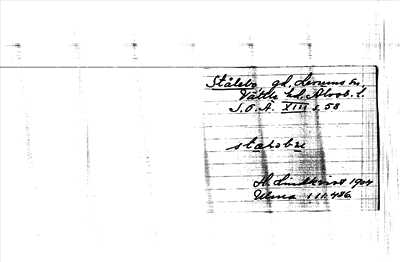 Stålebo gd, Lerums sn,
Vättle hd. Älvsb. l.
S.O.Ä. XIII s. 58
stabobu
H. Lindkvist 1904
Ulema I 11.436